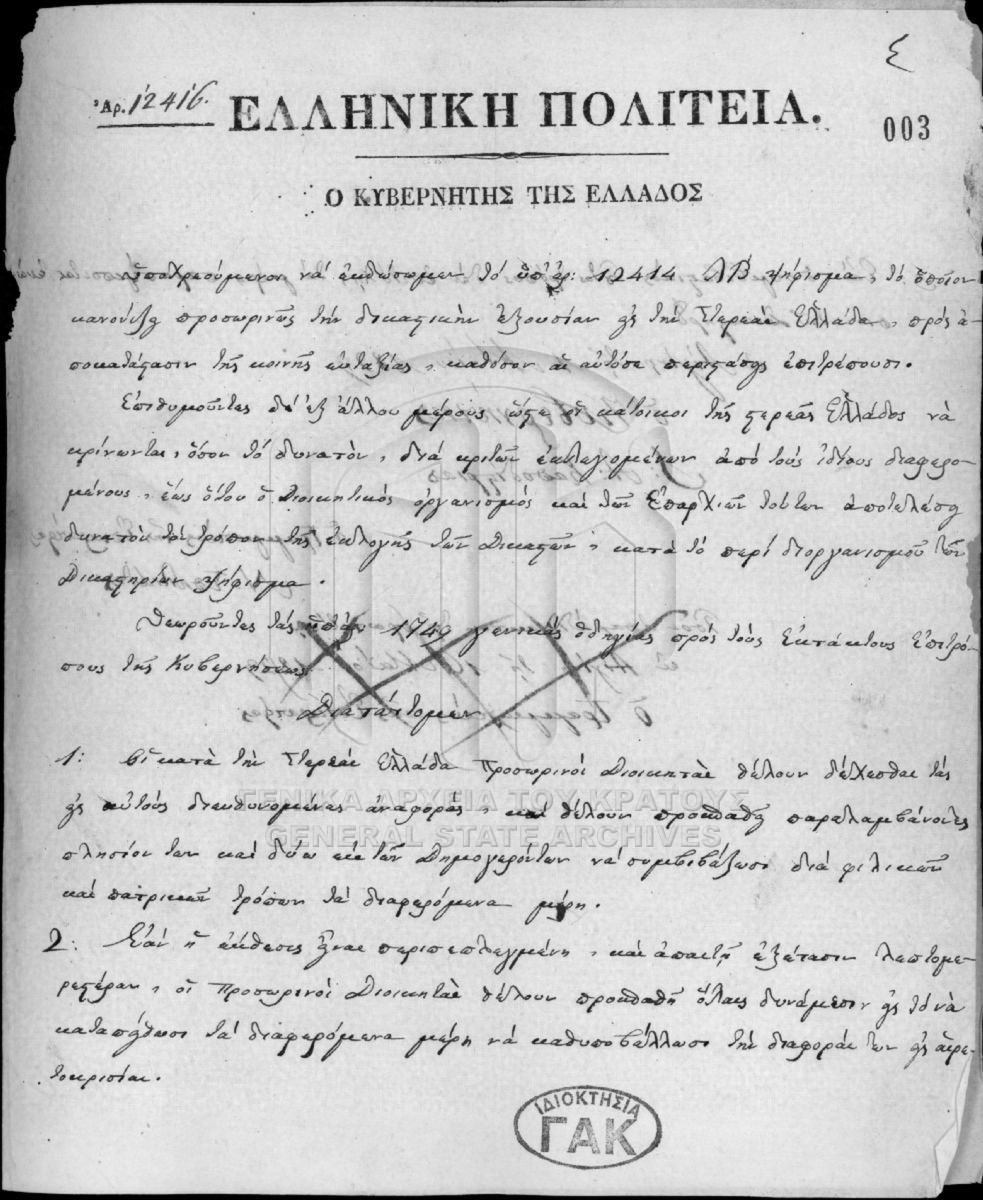 ς
Ἀρ. 12416.
ΕΛΛΗΝΙΚΗ ΠΟΛΙΤΕΙΑ.
003
Ο ΚΥΒΕΡΝΗΤΗΣ ΤΗΣ ΕΛΛΑΔΟΣ
Ὑποχρεούμενοι νὰ ἐκδώσωμεν τὸ ὑπ' ἀρ: 12414 ΛΒ ψήφισμα, τὸ ὁποῖον
κανονίζει προσωρινῶς τὴν δικαστικὴν ἐξουσίαν εἰς τὴν Στερεὰν Ἑλλάδα, πρὸς ἀ-
ποκατάστασιν τῆς κοινῆς εὐταξίας, καθόσον αἱ αὐτόσε περιστάσεις ἐπιτρέπουσι.
Ἐπιθυμοῦντες δ' ἐξ ἄλλου μέρους ὥστε οἱ κάτοικοι τῆς στερεᾶς Ἑλλάδος νὰ
κρίνωνται, ὅσον τὸ δυνατὸν, διὰ κριτῶν ἐκλεγομένων ἀπὸ τοὺς ἰδίους διαφερο-
μένους, ἕως ὅτου ὁ Διοικητικὸς ὀργανισμὸς καὶ τῶν Ἐπαρχιῶν τούτων ἀποτελέσῃ
δυνατὸν τὸν τρόπον τῆς ἐκλογῆς τῶν Δικαστῶν, κατὰ τὸ περὶ διοργανισμοῦ τῶν
Δικαστηρίων ψήφισμα.
Θεωροῦντες τὰς ὑπ' ἀρ. 1749 γενικὰς ὁδηγίας πρὸς τοὺς Ἐκτάκτους Ἐπιτρό-
πους τῆς Κυβερνήσεως
Διατάττομεν
1: Οἱ κατὰ τὴν Στερεὰν Ἑλλάδα Προσωρινοὶ Διοικηταὶ θέλουν δέχεσθαι τὰς
εἰς αὐτοὺς διευθυνομένας ἀναφορὰς, καὶ θέλουν προσπαθεῖ παραλαμβάνοντες
πλησίον των καὶ δύω ἐκ τῶν Δημογερόντων νὰ συμβιβάζωσι διὰ φιλικῶν
καὶ πατρικῶν τρόπων τὰ διαφερόμενα μέρη.
2: Ἐὰν ἡ ὑπόθεσις ἦναι περιπεπλεγμένη, καὶ ἀπαιτῇ ἐξέτασιν λεπτομε-
ρεστέραν, οἱ Προσωρινοὶ Διοικηταὶ θέλουν προσπαθῇ ὅλαις δυνάμεσιν εἰς τὸ νὰ
καταπείθωσι τὰ διαφερόμενα μέρη νὰ καθυποβάλλωσι τὴν διαφοράν των εἰς αἱρε-
τοκρισίαν.
ΓΕΝΙΚΑ ΑΡΧΕΙΑ ΤΟΥ ΚΡΑΤΟΥΣ
GENERAL STATE ARCHIVES
ΙΔΙΟΚΤΗΣΙΑ
ΓΑΚ